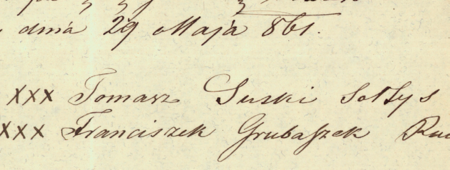 dnia 29 Maja 861.
XXX Tomasz Suski Sołtys
XXX Franciszek Grubaszek